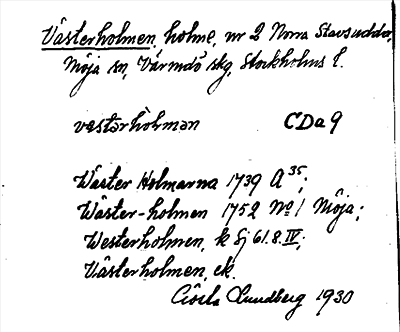 Västerholmen, holme, nr 2 Norra Stavsudda,
Möja sn, Värmdö skg, Stockholms l.
vestərhòlmən CDa9
Wäster Holmarna 1739 A 35;
Wäster-holmen 1752 No 1 Möja;
Westerholmen, k Sj 61.8.IV;
Västerholmen, ek.
Gösta Lundberg 1930